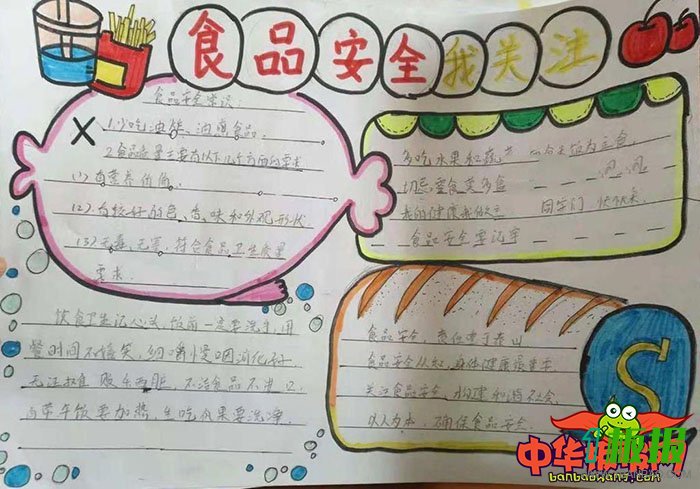 食品安全我关注
食品安全常识：
1.少吃油炸、油腻食品。
2.食品质量主要有以下几个方面的要求
(1)有营养价值。
(2)有较好的色、香、味和外观形状
(3)无毒、无害，符合食品卫生质量
要求。
多吃水果和蔬菜 为主食，
切忌零食莫多食
我的健康我做主 同学们 快快来，
食品安全要记牢
饮食卫生记心头，饭前一定要洗手，用
餐时间不搞笑，细嚼慢咽消化好。
无证摊贩 不洁食品不进口
自带午饭要加热 生吃瓜果要洗净。
食品安全，责任重于泰山
食品安全从,身体健康很重要
关注食品安全，构建和谐社会
以人为本，确保食品安全
S
中华板报网
板报
banbaowang.com